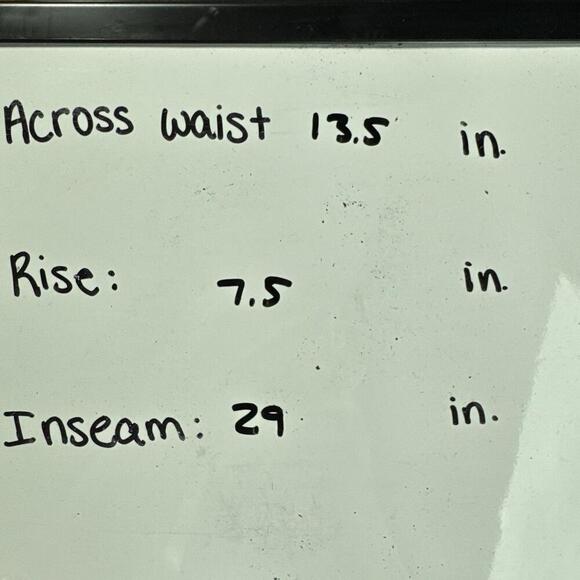 Across waist 13.5 in.
Rise: 7.5 in.
Inseam: 29 in.